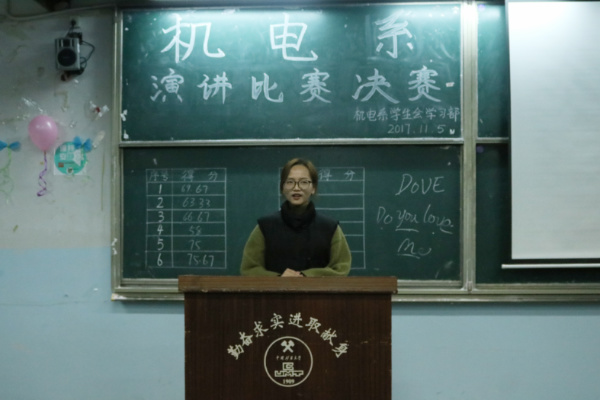 机电系
演讲比赛决赛
机电系学生会学习部
2017.11.5
序号 得分
1 67.67
2 63.33
3 66.67
4 58
5 75
6 75.67
得分
DOVE
Do you love
Me
勤奋求实进取献身
1909